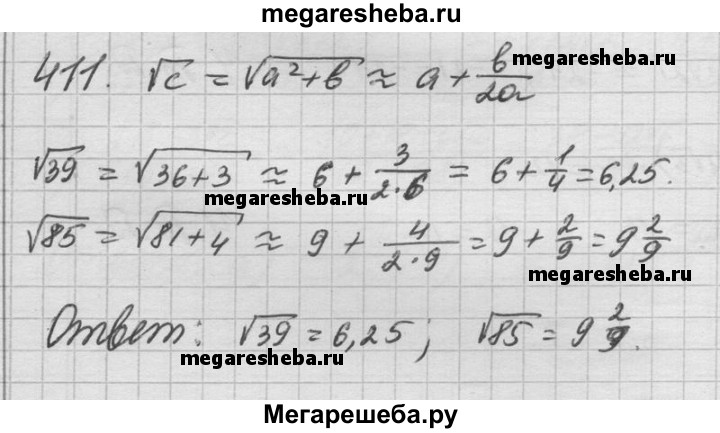 megaresheba.ru
411. √c = √(a²+b) ≈ a + b/2a
megaresheba.ru
√39 = √(36+3) ≈ 6 + 3/(2·6) = 6 + 1/4 = 6,25.
megaresheba.ru
√85 = √(81+4) ≈ 9 + 4/(2·9) = 9 + 2/9 = 9 2/9
megaresheba.ru
Ответ: √39 = 6,25; √85 = 9 2/9.
megaresheba.ru
Мегарешеба.ру